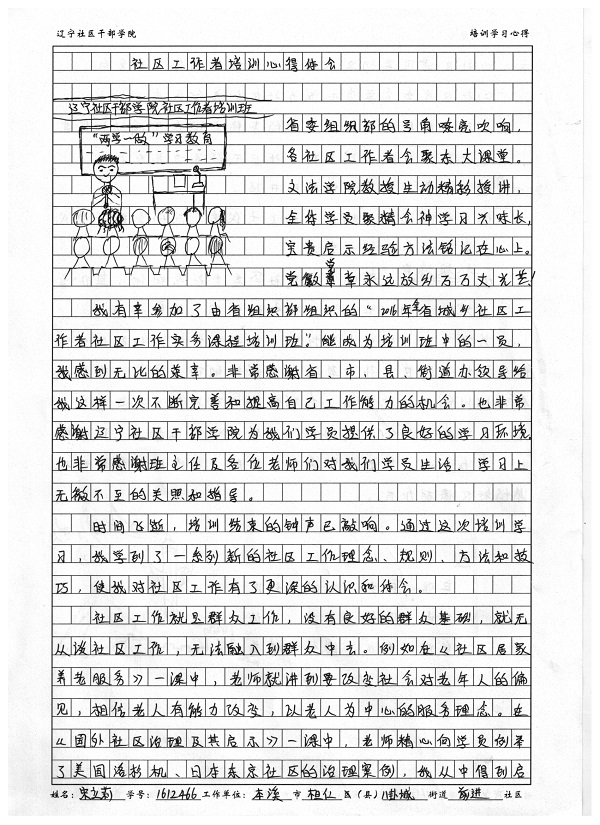 辽宁社区干部学院 培训学习心得
社区工作者培训心得体会
辽宁社区干部学院社区工作者培训班
“两学一做”学习教育
省委组织部的号角嘹亮吹响，
各社区工作者会聚东大课堂。
文法学院教授生动精彩授讲，
全体学员聚精会神学习兴味长，
宝贵启示经验方法铭记在心上。
党徽 永远放射万万丈光芒！
我有幸参加了由省组织部组织的“2016年全省城乡社区工
作者社区工作实务课程培训班”能成为培训班中的一员，
我感到无比的荣幸。非常感谢省、市、县、街道办领导给
我这样一次不断完善和提高自己工作能力的机会。也非常
感谢辽宁社区干部学院为我们学员提供了良好的学习环境，
也非常感谢班主任及各位老师们对我们学员生活、学习上
无微不至的关照和指导。
时间飞逝，培训结束的钟声已敲响。通过这次培训学
习，我学到了一系列新的社区工作理念、规则、方法和技
巧，使我对社区工作有了更深的认识和体会。
社区工作就是群众工作，没有良好的群众基础，就无
从谈社区工作，无法融入到群众中去。例如在《社区居家
养老服务》一课中，老师就讲到要改变社会对老年人的偏
见，相信老人有能力改变，以老人为中心的服务理念。在
《国外社区治理及其启示》一课中，老师精心向学员例举
了美国洛杉机、日本东京社区的治理案例，我从中得到启
姓名：宋立莉 学号：1612466 工作单位：本溪 市 桓仁 区（县）八卦城 街道 前进 社区